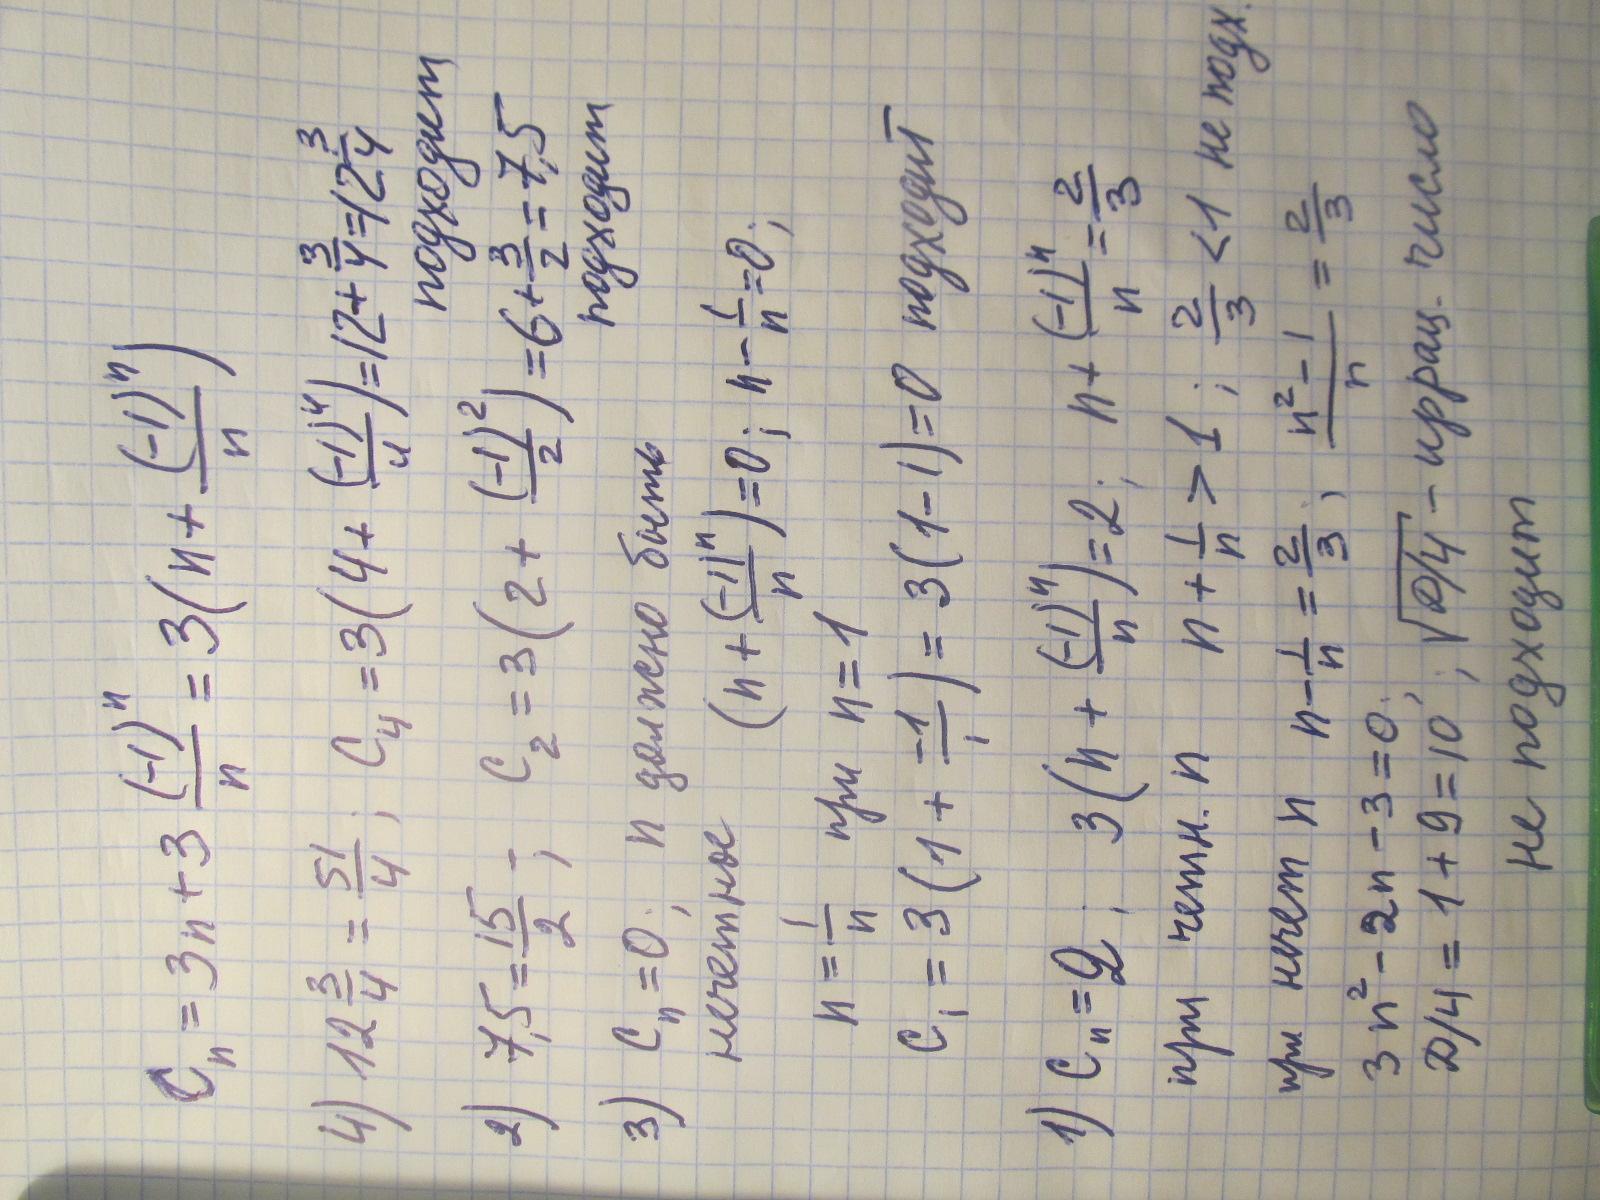 Cₙ = 3n + 3 (-1)ⁿ/n = 3(n + (-1)ⁿ/n)
4) 12 3/4 = 51/4; C₄ = 3(4 + (-1)⁴/4) = 12 + 3/4 = 12 3/4
подходит
2) 7,5 = 15/2 -; C₂ = 3(2 + (-1)²/2) = 6 + 3/2 = 7,5
подходит
3) Cₙ = 0; n должно быть
нечетное (n + (-1)ⁿ/n) = 0; n - 1/n = 0;
n = 1/n при n = 1
C₁ = 3(1 + -1/1) = 3(1-1) = 0 подходит
1) Cₙ = 2; 3(n + (-1)ⁿ/n) = 2; n + (-1)ⁿ/n = 2/3
при четн. n n + 1/n > 1; 2/3 < 1 не подх.
при нечет n n - 1/n = 2/3; n² - 1/n = 2/3
3n² - 2n - 3 = 0;
D/4 = 1 + 9 = 10; √D/4 - иррац. число
не подходит